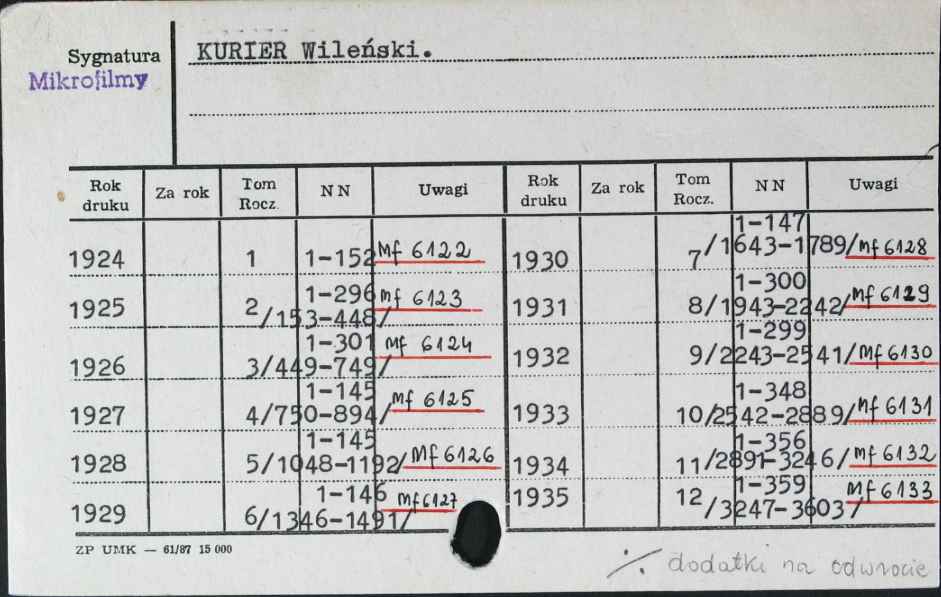 Sygnatura
Mikrofilmy
KURIER Wileński.
Rok druku Za rok Tom Rocz. NN Uwagi Rok druku Za rok Tom Rocz. NN Uwagi
1924 1 1-152 Mf 6122
1925 2 1-296 /153-448/ Mf 6123
1926 3 1-301 /449-749/ Mf 6124
1927 4 1-145 /750-894/ Mf 6125
1928 5 1-145 /1048-1192/ Mf 6126
1929 6 1-146 /1346-1491/ Mf 6127
1930 7 1-147 /1643-1789/ Mf 6128
1931 8 1-300 /1943-2242/ Mf 6129
1932 9 1-299 /2243-2541/ Mf 6130
1933 10 1-348 /2542-2889/ Mf 6131
1934 11 1-356 /2891-3246/ Mf 6132
1935 12 1-359 /3247-3603/ Mf 6133
ZP UMK — 61/87 15 000
./. dodatki na odwrocie